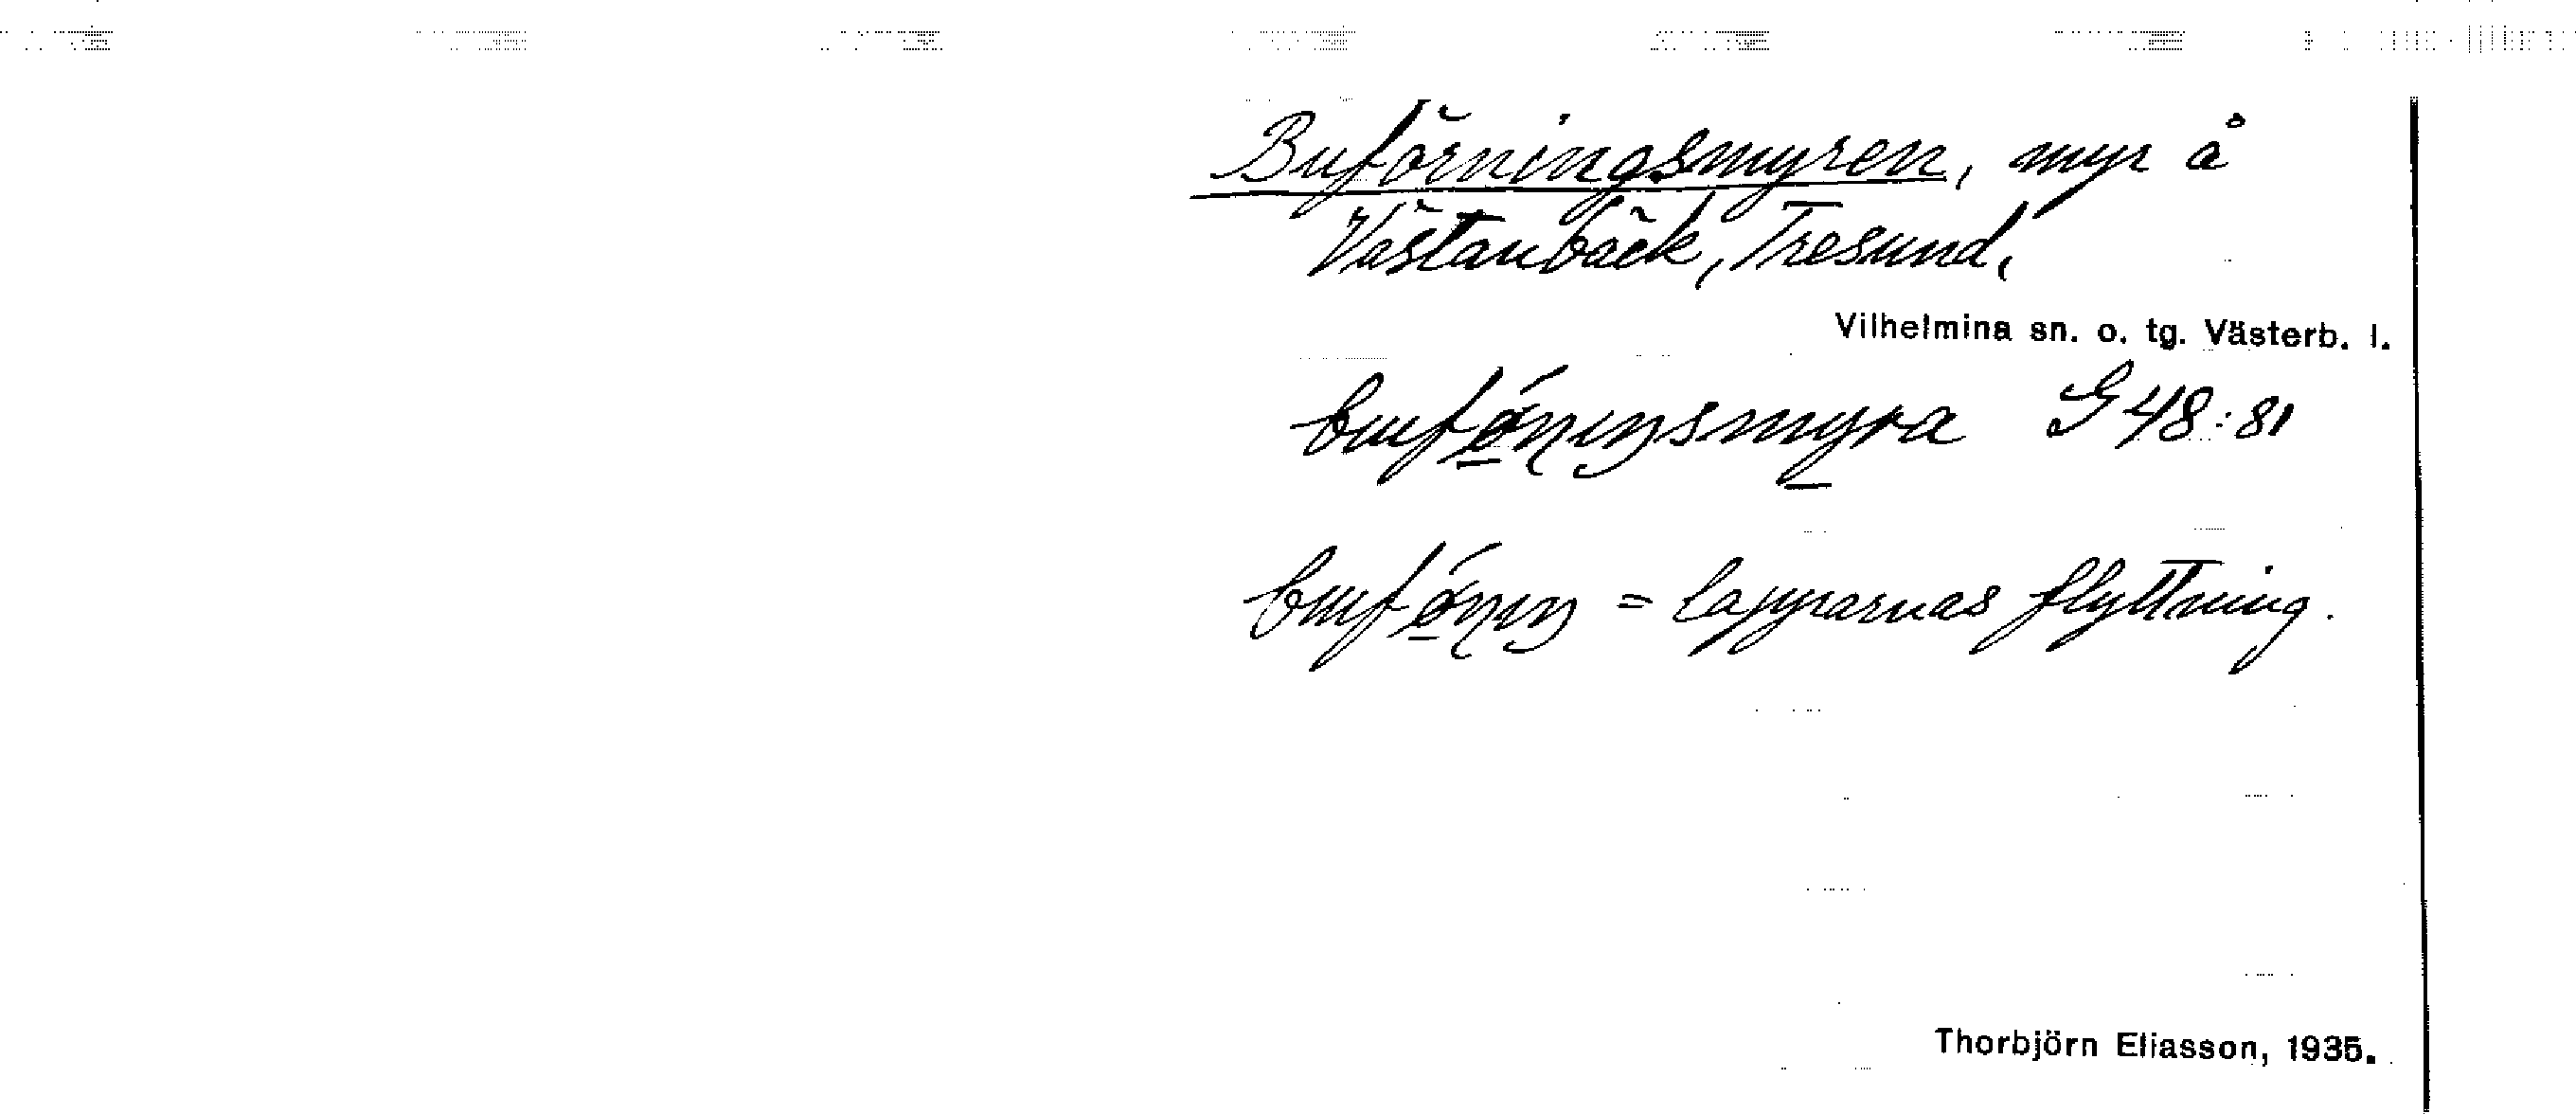 Buförningsmyren, myr å
Västanbäck, Tresund,
Vilhelmina sn. o. tg. Västerb. l.
bufö́ṇiŋsmyra G 48:81
bufö́ṇiŋ = lapparnas flyttning.
Thorbjörn Eliasson, 1935.